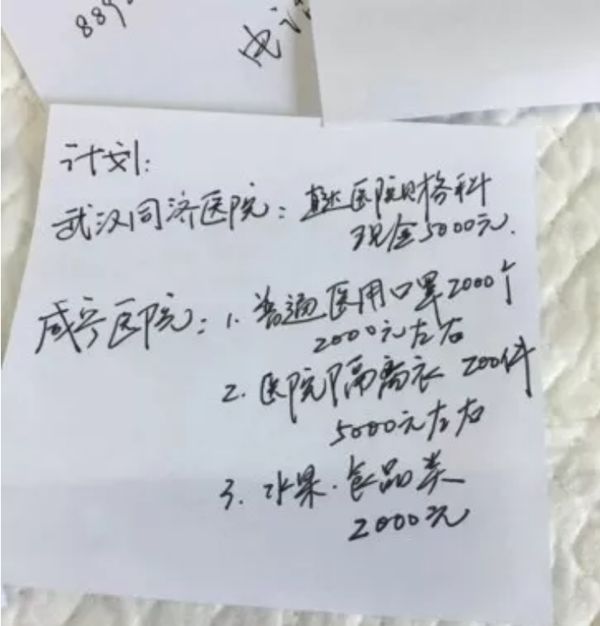 889
电话
计划:
武汉同济医院: 直达医院财务科
现金5000元.
咸宁医院: 1. 普通医用口罩2000个
2000元左右
2. 医院隔离衣 200件
5000元左右
3. 水果.食品类
2000元